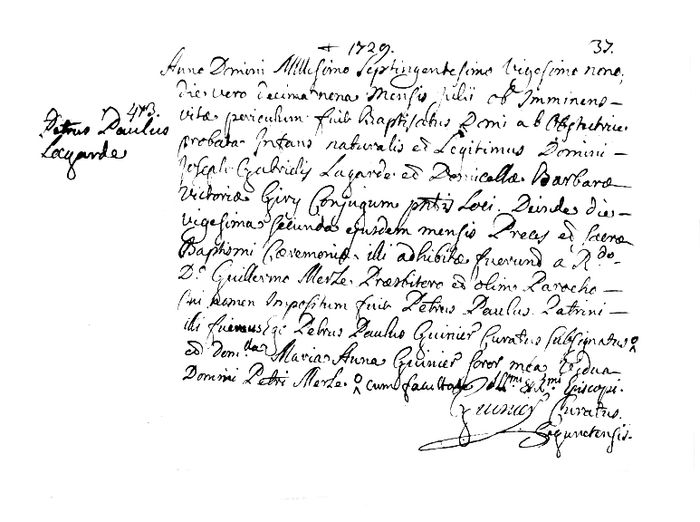 + 1729. 37.
Anno Domini Millesimo Septingentesimo Vigesimo nono,
die vero decima nona Mensis Julii ob Imminens
vitæ periculum fuit Baptisatus Domi ab Obstetrice
473.
Petrus Paulus
Lagarde
probata Infans naturalis et Legitimus Domini
Joseph Gabrielis Lagarde et Domicellæ Barbaræ
Victoriæ Giry Conjugum Loci. Deinde die
vigesima secunda ejusdem mensis Preces et sacræ
Baptismi Cæremoniæ illi adhibitæ fuerunt a Rdo.
D.o Guillermo Merle Præsbitero et olim Parocho
Cui nomen Impositum fuit Petrus Paulus. Patrini
illi fuimus Ego Petrus Paulus Guinier Curatus subsignatus
et dom.lla Maria Anna Guinier soror mea Vidua
Domini Petri Merle cum facultate Ill.mi & R.mi Episcopi.
Guinier Curatus